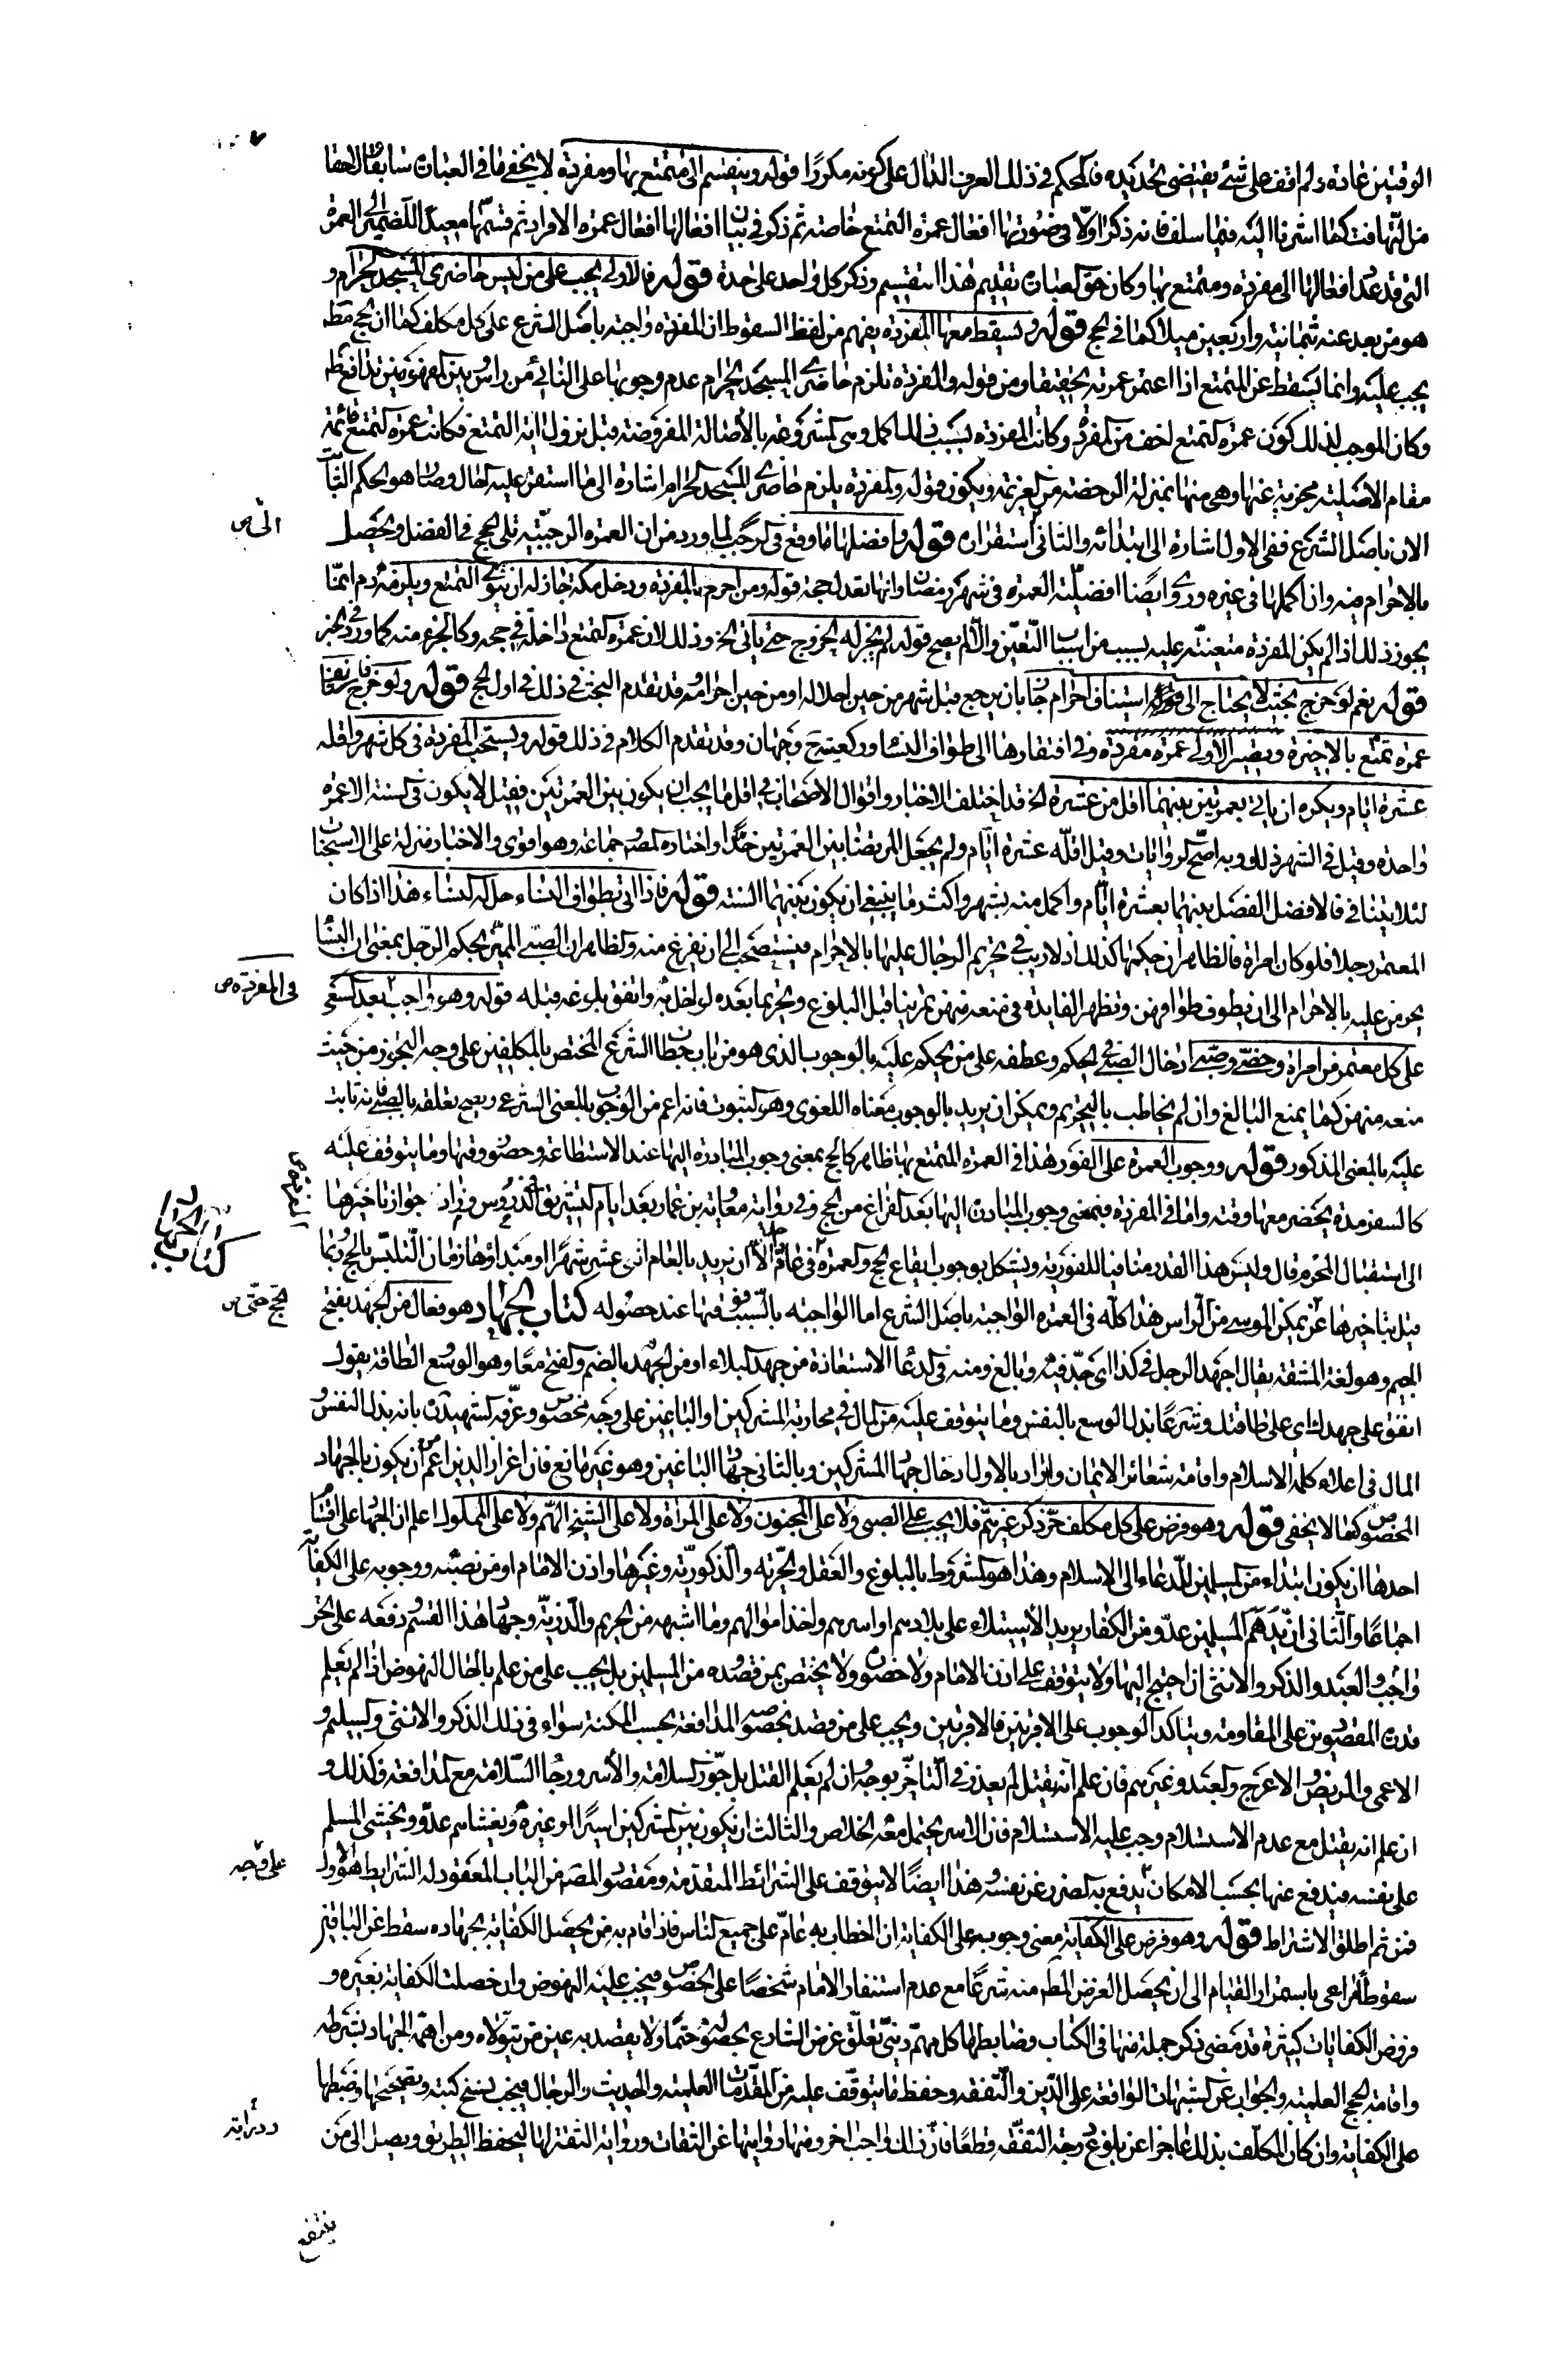 الوقتين عادة ولم اقف على شئ يقتضى تحديده فالمحكم فى ذلك العرف الدال على كونه مكررا قوله وينقسم الى متمتع بها ومفردة لا يخفى ما فى العبارة سابقا ولاحقا
من التهافت كما اشرنا اليه فيما سلف فانه ذكر اولا فى صورتها افعال عمرة التمتع خاصة ثم ذكر فى بيان افعالها افعال عمرة الافراد ثم قسمها معيدا للضمير الى العمرة
التى قد عد افعالها الى مفردة ومتمتع بها وكان حق العبارة تقديم هذا التقسيم وذكر كل واحد على حدة قوله فالاولى يجب على من ليس حاضرى المسجد الحرام و
هو من بعد عنه ثمانية واربعين ميلا كما فى الحج قوله وتسقط معها المفردة يفهم من لفظ السقوط ان المفردة واجبة باصل الشرع على كل مكلف كما ان الحج مط
يجب عليه وانما يسقط عن المتمتع اذا اعتمر عمرته تخفيفا ومن قوله والمفردة تلزم حاضرى المسجد الحرام عدم وجوبها على النائى من راس وبين المفهومين تدافع ظ
وكان الموجب لذلك كون عمرة التمتع اخف من المفردة وكانت المفردة بسبب ذلك اكمل وهى المشروعة بالاصالة المفروضة قبل نزول اية التمتع فكانت عمرة التمتع قائمة
مقام الاصلية مجزية عنها وهى منها بمنزلة الرخصة من العزيمة ويكون قوله والمفردة يلزم حاضرى المسجد الحرام اشارة الى ما استقر عليه الحال وصار هو الحكم الثابت
الان باصل الشرع ففى الاول اشارة الى ابتدائه والثانى استقراره قوله وافضلها ما وقع فى رجب لما ورد من ان العمرة الرجبية تلى الحج فى الفضل ويحصل
الى ص
بالاحرام فيه وان اكملها فى غيره وروى ايضا افضلية العمرة فى شهر رمضان وانها تعدل حجة قوله ومن احرم بالمفردة ودخل مكة جاز له ان ينوى التمتع ويلزمه دم انما
يجوز ذلك اذا لم يكن المفردة متعينة عليه بسبب من اسباب التعين والا لم يصح قوله لم يجز له الخروج حتى ياتى الخ وذلك لان عمرة التمتع داخلة فى حجه وكالجزء منه كما ورد فى الخبر
قوله نعم لو خرج بحيث لا يحتاج الى استيناف احرام جاز بان يرجع قبل شهر من حين احلاله او من حين احرامه وقد تقدم البحث فى ذلك فى اول الحج قوله ولو خرج فاستانف
عمرة تمتع بالاخيرة ويصير الاولى عمرة مفردة وفى افتقارها الى طواف النساء وركعتيه وجهان وقد تقدم الكلام فى ذلك قوله ويستحب المفردة فى كل شهر واقله
عشرة ايام ويكره ان ياتى بعمرتين بينهما اقل من عشرة الخ قد اختلف الاخبار واقوال الاصحاب فى اقل ما يجب ان يكون بين العمرتين فقيل لا يكون فى السنة الا عمرة
واحدة وقيل فى الشهر وبه اصح الروايات وقيل اقله عشرة ايام ولم يجعل المرتضى بين العمرتين حدا واختاره المص وجماعة وهو اقوى والاخبار منزلة على الاستحباب
لئلا يتنافى فالافضل الفصل بينهما بعشرة ايام واكمل منه بشهر واكثر ما ينبغى ان يكون بينهما السنة قوله فاذا اتى بطواف النساء حل له النساء هذا اذا كان
المعتمر رجلا فلو كان امراة فالظاهر ان حكمها كذلك اذ لا ريب فى تحريم الرجال عليها بالاحرام فيستصحب الى ان يفرغ منه والظاهر ان الصبى المميز بحكم الرجل بمعنى ان النساء
فى المفردة ص
يحرمن عليه بالاحرام الى ان يطوف طوافهن وتظهر الفايدة فى منعه منهن تمرينا قبل البلوغ وتحريما بعده لو اخل به واتفق بلوغه قبله قوله وهو واجب بعد السعى
على كل معتمر من امراة وخصى وصبى ادخال الصبى فى الحكم وعطفه على من يحكم عليه بالوجوب الذى هو من باب خطاب الشرع المختص بالمكلفين على وجه التجوز من حيث
منعه منهن كما يمنع البالغ وان لم يخاطب بالتحريم ويمكن ان يريد بالوجوب معناه اللغوى وهو الثبوت فانه اعم من الوجوب بالمعنى الشرعى ويصح تعلقه بالصبى فانه ثابت
عليه بالمعنى المذكور قوله ووجوب العمرة على الفور هذا فى العمرة المتمتع بها ظاهر كالحج بمعنى وجوب المبادرة اليها عند الاستطاعة وحضور وقتها وما يتوقف عليه
كالسفر مدة يحضر معها وقته واما فى المفردة فبمعنى وجوب المبادرة اليها بعد الفراغ من الحج وفى رواية معاوية بن عمار بعد ايام التشريق وفى الدروس جواز تاخيرها
كتاب الجهاد
الى استقبال المحرم قال وليس هذا القدر منافيا للفورية ويشكل بوجوب ايقاع الحج والعمرة فى عام الا ان يريد بالعام اثنى عشر شهرا ومبداؤها زمان التلبس بالحج وربما
قيل بتاخيرها عن يمكن الموسى من الراس هذا كله فى العمرة الواجبة باصل الشرع اما الواجبة بالسبب فوقتها عند حصوله كتاب الجهاد هو فعال من الجهد بفتح
الحج حتى ص
الجيم وهو لغة المشقة يقال اجهد الرجل فى كذا اى جد فيه وبالغ ومنه فى الدعاء الاستعاذة من جهد البلاء او من الجهد بالضم والفتح معا وهو الوسع الطاقة يقول
انفق على جهدك اى على طاقتك وشرعا بذل الوسع بالنفس وما يتوقف عليه من المال فى محاربة المشركين او الباغين على وجه مخصوص وعرفه الشهيد ره بانه بذل النفس و
المال فى اعلاء كلمة الاسلام واقامة شعائر الايمان واراد بالاول ادخال جهاد المشركين وبالثانى جهاد الباغين وهو غير مانع فان اعزاز الدين اعم من ان يكون بالجهاد
المخصوص كما لا يخفى قوله وهو فرض على كل مكلف حر ذكر غير هم فلا يجب على الصبى ولا على المجنون ولا على المراة ولا على الشيخ الهم ولا على المملوك اعلم ان الجهاد على اقسام
احدها ان يكون ابتداء من المسلمين للدعاء الى الاسلام وهذا هو المشروط بالبلوغ والعقل والحرية والذكورية وغيرها واذن الامام او من نصبه ووجوبه على الكفاية
اجماعا والثانى ان يدهم المسلمين عدو من الكفار يريد الاستيلاء على بلادهم او اسرهم واخذ اموالهم وما اشبهه من الحريم والذرية وجهاد هذا القسم دفعه على الحر
واجب والعبد والذكر والانثى ان احتيج اليها ولا يتوقف على اذن الامام ولا حضوره ولا يختص بمن قصدوه من المسلمين بل يجب على من علم بالحال النهوض اذا لم يعلم
قدرة المقصودين على المقاومة ويتاكد الوجوب على الاقربين فالاقربين ويجب على من قصد بخصوصه المدافعة بحسب المكنة سواء فى ذلك الذكر والانثى والسليم و
الاعمى والمريض والاعرج والعبد وغيرهم فان علم انه يقتل لم يعذر فى التاخر بوجه وان لم يعلم القتل بل جوز السلامة والاسر ورجا السلامة مع المدافعة فكذلك و
ان علم انه يقتل مع عدم الاستسلام وجب عليه الاستسلام فان الاسر يحتمل معه الخلاص والثالث ان يكون بين المشركين اسيرا او غيره ويغشاهم عدو ويخشى المسلم
على نفسه فيدفع عنها بحسب الامكان يدفع به الضرر عن نفسه وهذا ايضا لا يتوقف على الشرائط المتقدمة ومقصود المص من الباب المعقود له الشرايط هو الاول
على وجه
فمن ثم اطلق الاشتراط قوله وهو فرض على الكفاية معنى وجوبه على الكفاية ان الخطاب به عام على جميع الناس فاذا قام به من يحصل الكفاية بجهاده سقط عن الباقين
سقوطا مراعى باستمرار القيام الى ان يحصل الغرض المط منه شرعا مع عدم استنفار الامام شخصا على الخصوص فيجب عليه النهوض وان حصلت الكفاية بغيره و
فروض الكفايات كثيرة قد مضى ذكر جملة منها فى الكتاب وضابطها كل مهم دينى تعلق غرض الشارع بحصوله حتما ولا يقصد به عين من يتولاه ومن اهمه الجهاد بشرطه
واقامة الحجج العلمية والجواب عن الشبهات الواقعة على الدين والتفقه وحفظ ما يتوقف عليه من المقدمات العلمية والحديث والرجال فيجب نسخ كتبه وتصحيحها وضبطها
على الكفاية وان كان المكلف بذلك عاجزا عن بلوغ درجة التفقه قطعا فان ذلك واجب اخر ومنها روايتها عن الثقات ورواية الثقة لها ليحفظ الطريق ويصل الى من
ودرايته